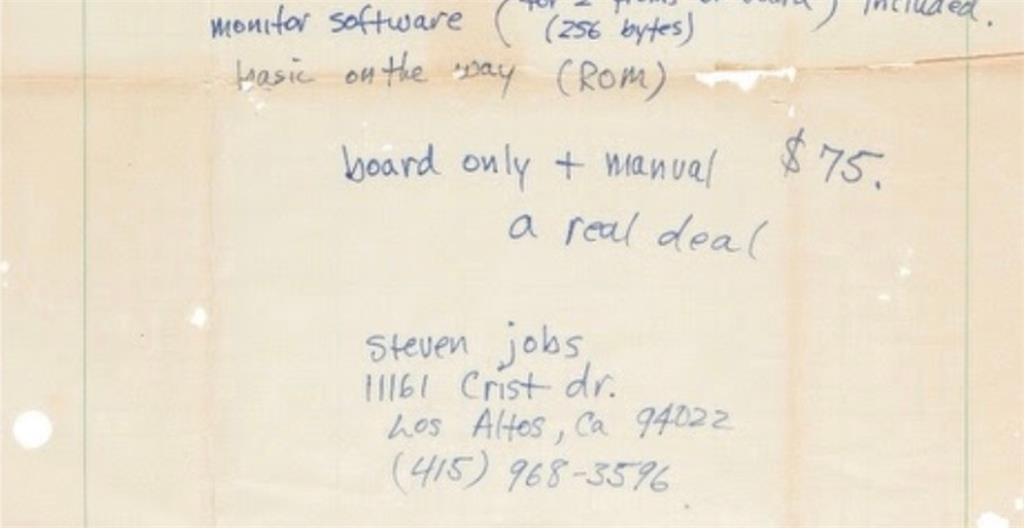 monitor software ( for 2 proms on board ) included.
(256 bytes)
basic on the way (ROM)
board only + manual $75.
a real deal
steven jobs
11161 Crist dr.
Los Altos, Ca 94022
(415) 968-3596